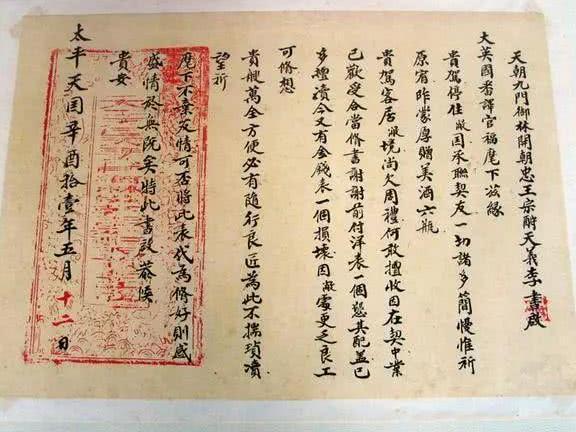 天朝九門御林開朝忠王宗酹天義李書啟
大英國番譯官福麾下茲緣
貴駕停住敝國承聯契友一切諸多簡慢惟祈
原宥昨蒙厚贈美酒六瓶
貴駕客居敝境尚欠周禮何敢擅收因在契中業
已歡受合當脩書謝謝前付洋表一個懇其配蓋已
多種瀆今又有金錢表一個損壞因敝處更乏良工
可脩想
貴艘萬全方便必有隨行良匠為此不揣瑣凟
望祈
麾下不棄友情可否將此表代為脩好則感
盛情於無既矣特此書啟恭候
貴安
太平天囯辛酉拾壹年五月十二日